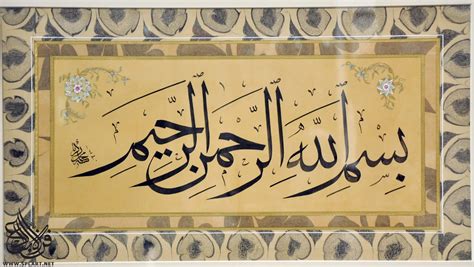 بسم الله الرحمن الرحيم
WWW.SFCART.NET